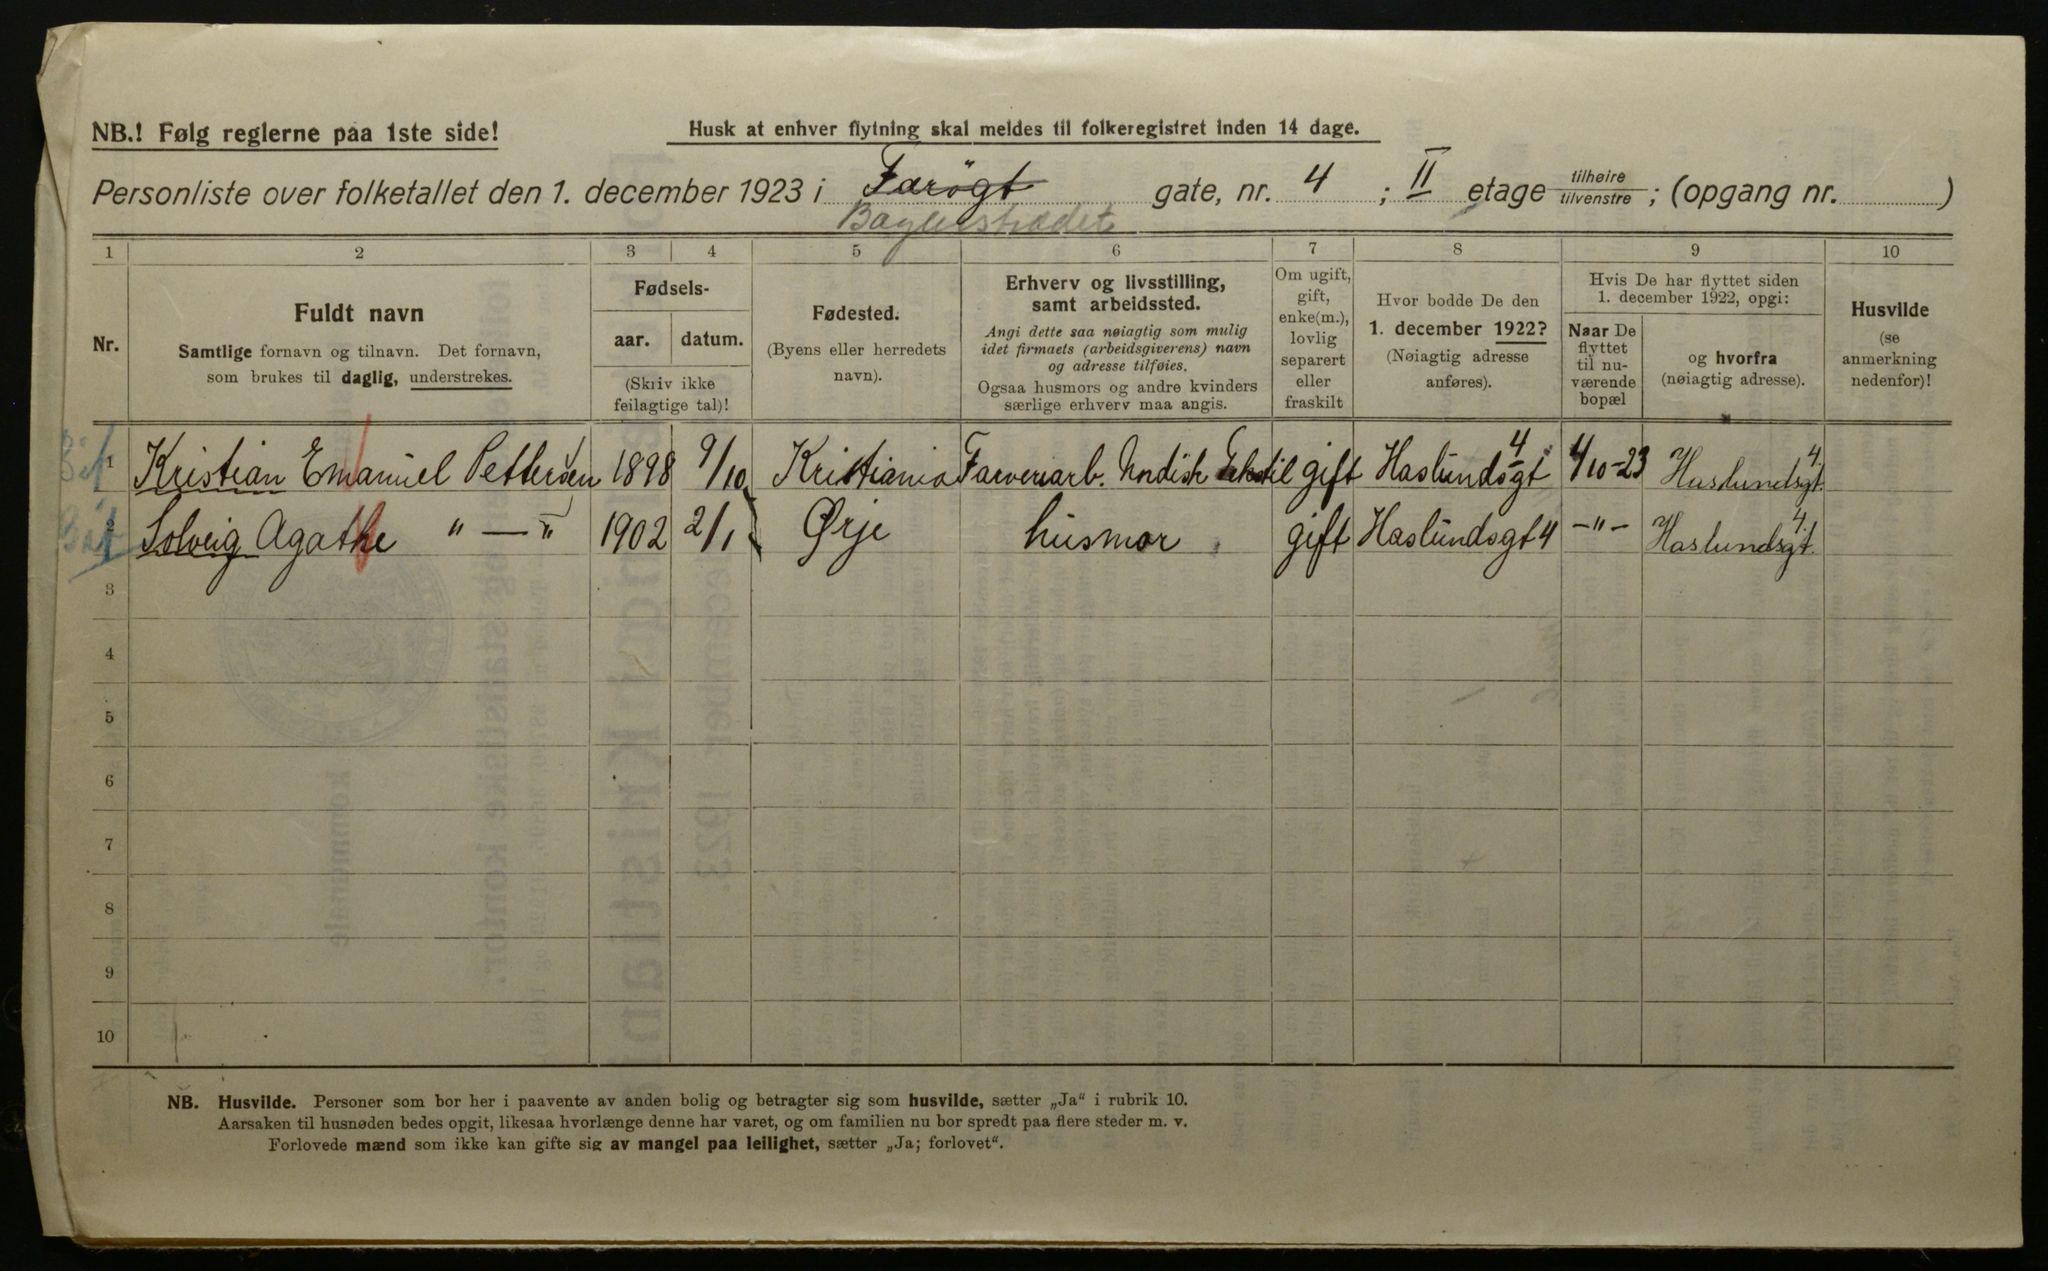 NB.! Følg reglerne paa 1ste side!
Husk at enhver flytning skal meldes til folkeregistret inden 14 dage.
Personliste over folketallet den 1. december 1923 i Farögt gate, nr. 4 ; II etage tilhøire/tilvenstre ; (opgang nr. )
1 2 3 4 5 6 7 8 9 10
Nr.
Fuldt navn
Samtlige fornavn og tilnavn. Det fornavn,
som brukes til daglig, understrekes.
Fødsels-
aar. datum.
(Skriv ikke
feilagtige tal)!
Fødested.
(Byens eller herredets
navn).
Erhverv og livsstilling,
samt arbeidssted.
Angi dette saa nøiagtig som mulig
idet firmaets (arbeidsgiverens) navn
og adresse tilføies.
Ogsaa husmors og andre kvinders
særlige erhverv maa angis.
Om ugift,
gift,
enke(m.),
lovlig
separert
eller
fraskilt
Hvor bodde De den
1. december 1922?
(Nøiagtig adresse
anføres).
Hvis De har flyttet siden
1. december 1922, opgi:
Naar De
flyttet
til nu-
værende
bopæl
og hvorfra
(nøiagtig adresse).
Husvilde
(se
anmerkning
nedenfor)!
1 Kristian Emanuel Pettersen 1898 9/10 Kristiania Farveriarb. Nordisk Tekstil gift Haslundsgt 4 4/10-23 Haslundsgt. 4.
2 Solveig Agathe " — " 1902 2/1 Ørje husmor gift Haslundsgt 4 –"– Haslundsgt. 4.
3
4
5
6
7
8
9
10
NB. Husvilde. Personer som bor her i paavente av anden bolig og betragter sig som husvilde, sætter „Ja“ i rubrik 10.
Aarsaken til husnøden bedes opgit, likesaa hvorlænge denne har varet, og om familien nu bor spredt paa flere steder m. v.
Forlovede mænd som ikke kan gifte sig av mangel paa leilighet, sætter „Ja; forlovet“.